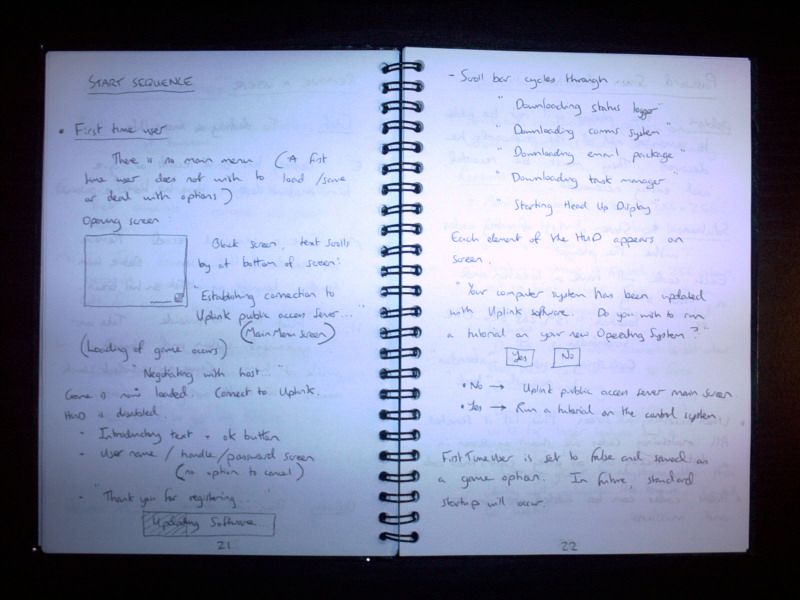 START SEQUENCE
• First time user
There is no main menu (A first
time user does not wish to load/save
or deal with options)
Opening screen
Black screen, text scrolls
by at bottom of screen:
"Establishing connection to
Uplink public access server..."
(Main Menu Screen)
(Loading of game occurs)
"Negotiating with host...
Game is now loaded. Connect to Uplink.
HUD is disabled.
- Introductory text + ok button
- User name / handle / password screen
(no option to cancel)
- "Thank you for registering..."
Updating Software...
21
- Scroll bar cycles through
"Downloading status logger"
"Downloading comms system"
"Downloading email package"
"Downloading task manager"
"Starting Head Up Display"
Each element of the HUD appears on
screen.
"Your computer system has been updated
with Uplink software. Do you wish to run
a tutorial on your new Operating System?"
Yes No
• No → Uplink public access server main screen
• Yes → Run a tutorial on the control system.
FirstTimeUser is set to false and saved as
a game option. In future, standard
startup will occur.
22